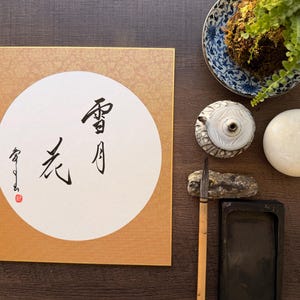 雪月
花